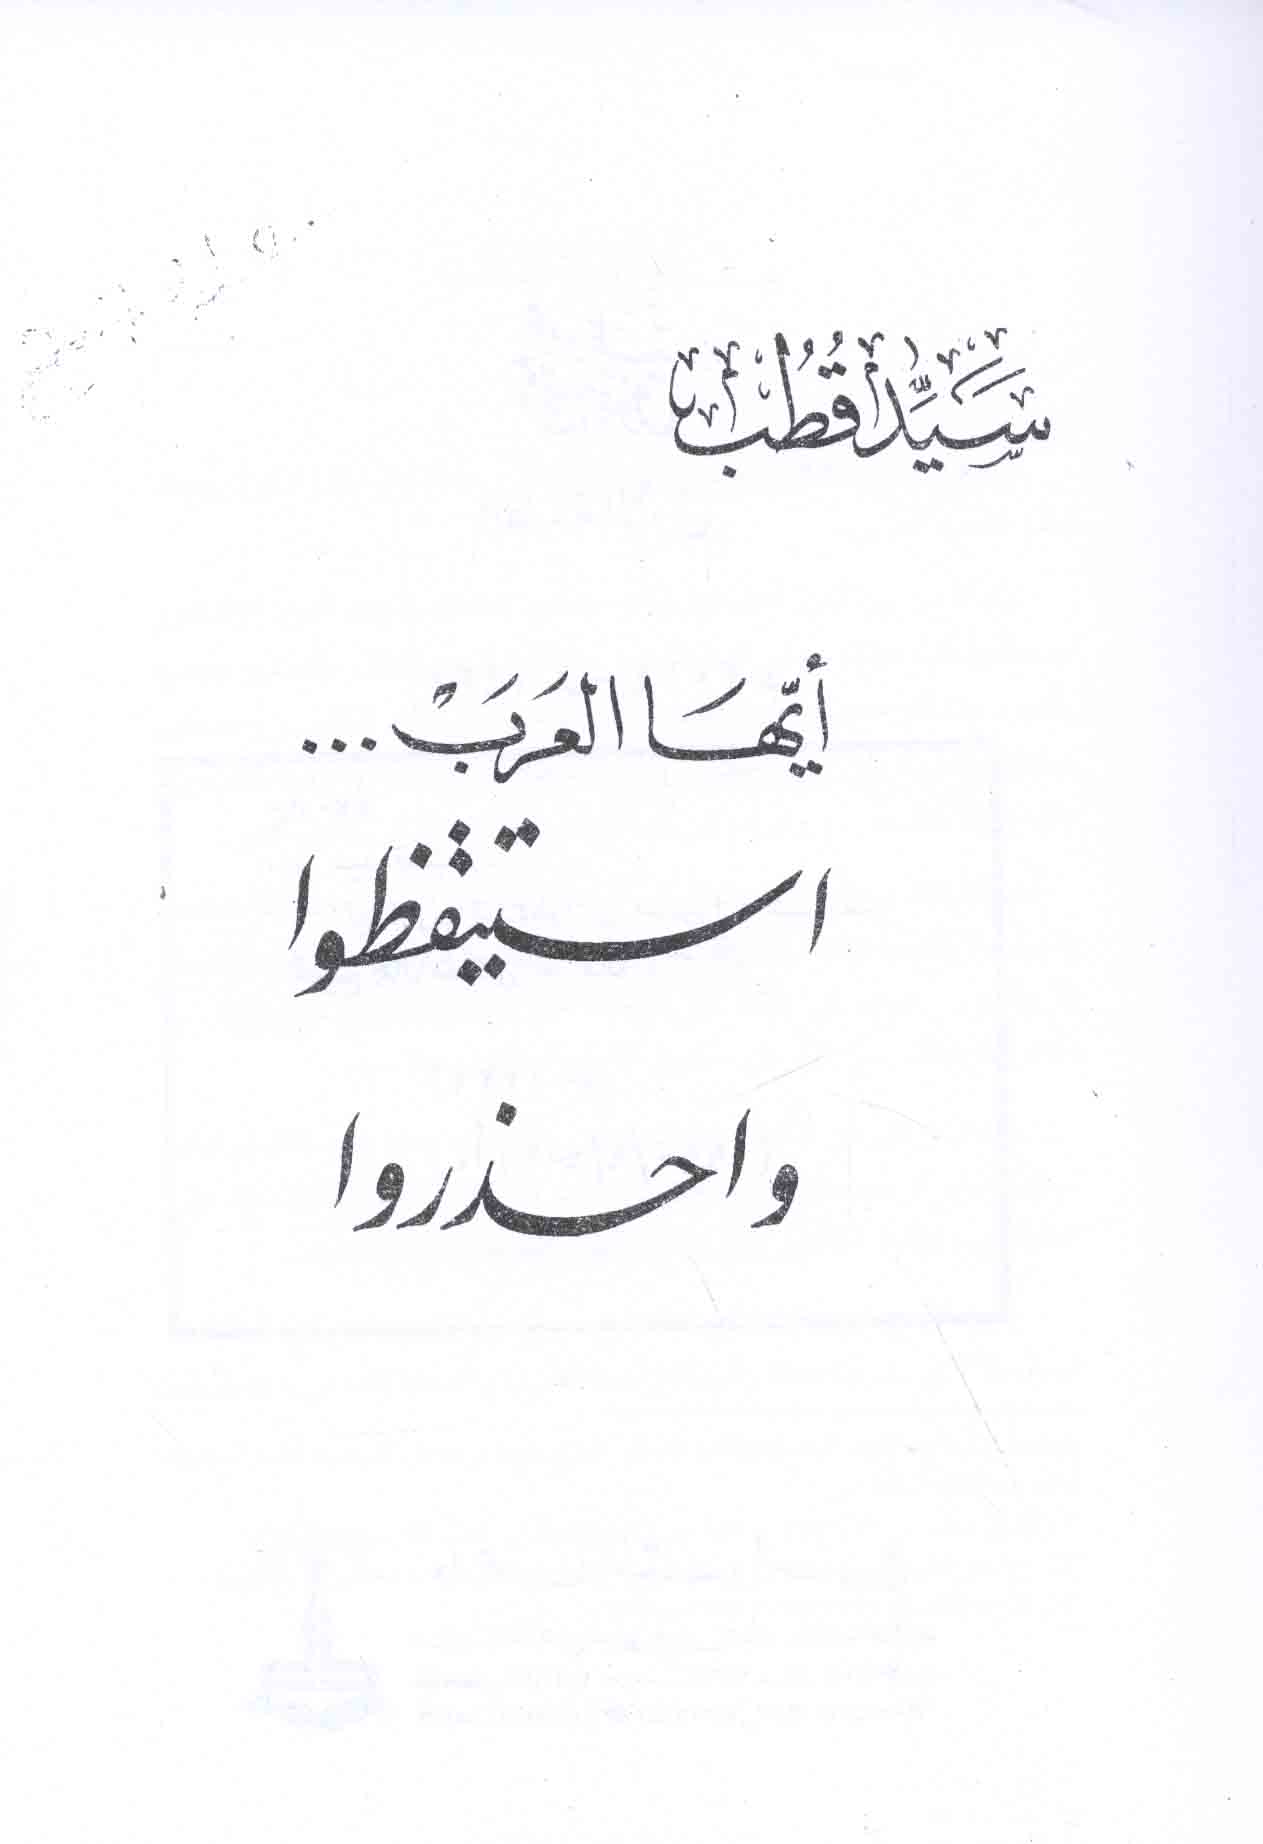 سَيِّد قُطُب
أيّهَا العَرَبْ ...
استيقظوا
واحذروا